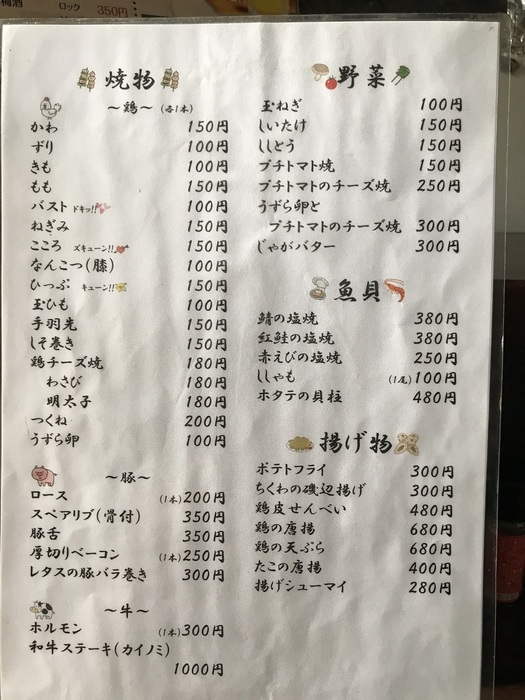 梅酒 ロック 350円
焼物
～鶏～(各1本)
かわ 150円
ずり 100円
きも 100円
もも 150円
バスト ドキッ!! 100円
ねぎみ 150円
こころ ズキューン!! 150円
なんこつ(膝) 100円
ひっぷ キューン!! 150円
玉ひも 100円
手羽先 150円
しそ巻き 150円
鶏チーズ焼 180円
わさび 180円
明太子 180円
つくね 200円
うずら卵 100円
～豚～
ロース (1本)200円
スペアリブ(骨付) 350円
豚舌 350円
厚切りベーコン (1本)250円
レタスの豚バラ巻き 300円
～牛～
ホルモン (1本)300円
和牛ステーキ(カイノミ)
1000円
野菜
玉ねぎ 100円
しいたけ 150円
ししとう 150円
プチトマト焼 150円
プチトマトのチーズ焼 250円
うずら卵と
プチトマトのチーズ焼 300円
じゃがバター 300円
魚貝
鯖の塩焼 380円
紅鮭の塩焼 380円
赤えびの塩焼 250円
ししゃも (1尾)100円
ホタテの貝柱 480円
揚げ物
ポテトフライ 300円
ちくわの磯辺揚げ 300円
鶏皮せんべい 480円
鶏の唐揚 680円
鶏の天ぷら 680円
たこの唐揚 400円
揚げシューマイ 280円